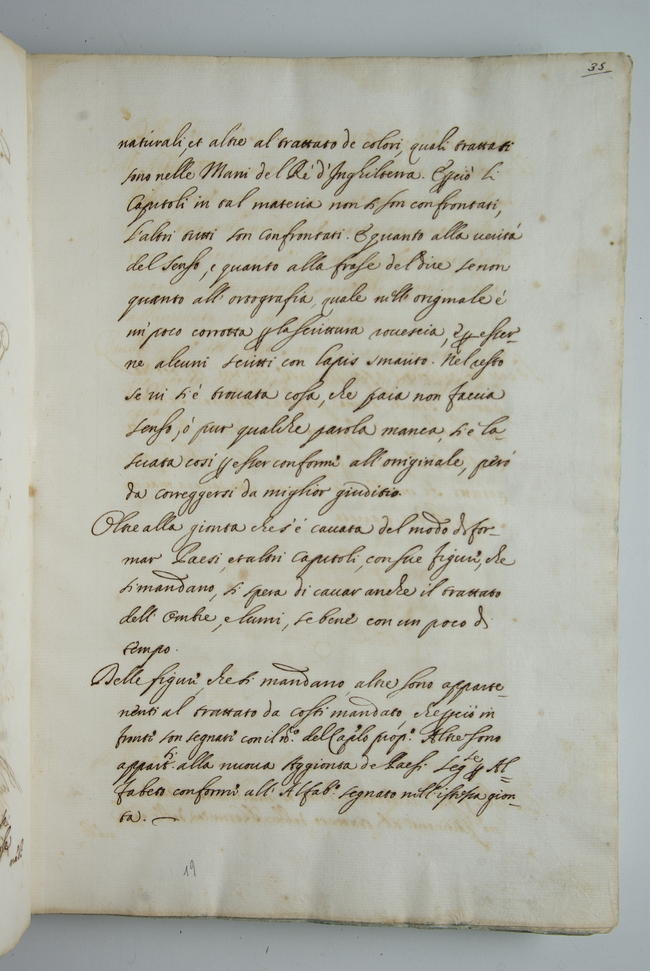 35
naturali, et altre al trattato de colori, quali trattati
sono nelle Mani del Rè d'Inghilterra. E perciò li
Capitoli in tal materia non si son confrontati,
L'altri tutti son confrontati. E quanto alla verità
del senso, e quanto alla frase del dire se non
quanto all'ortografia, quale nell'originale è
un poco corrotta per la scrittura rovescia, e per esser-
ne alcuni scritti con lapis smarito. Nel resto
se vi si è trovata cosa, che paia non faccia
senso, ò pur qualche parola manca, si è la-
sciata così per esser conforme all'originale, però
da correggersi da miglior giuditio.
Oltre alla gionta che s'è cavata del modo di for-
mar Paesi, et altri capitoli, con sue figure, che
si mandano, si spera di cavar anche il trattato
dell'Ombre, e lumi, se bene con un poco di
tempo.
Delle figure, che si mandano, altre sono apparte-
nenti al trattato da costì mandato, che perciò in
fronte son segnati con il nº. del Capitolo prop.º Altre sono
appart.ti alla nuova Aggionta de Paesi Seg.te per Al=
fabeto conforme all'Alfab.º segnato nell'istessa gion-
ta.
19